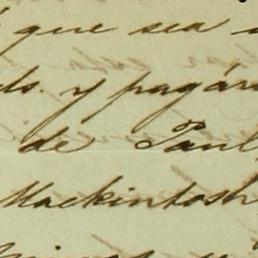 que sea
y pagár
de Paul
Mackintosh